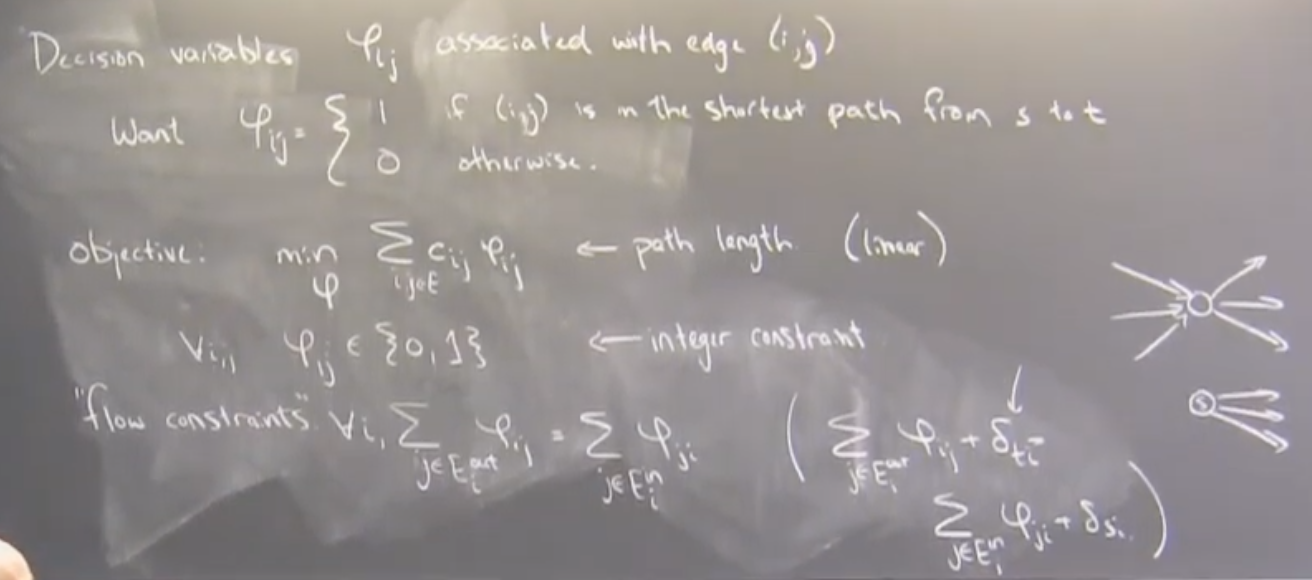 Decision variables φ_ij associated with edge (i,j)
Want φ_ij = { 1 if (i,j) is in the shortest path from s to t
0 otherwise.
objective: min_φ ∑_{ij∈E} c_ij φ_ij ← path length (linear)
∀i,j φ_ij ∈ {0,1} ← integer constraint
"flow constraints" ∀i, ∑_{j∈E_i^out} φ_ij = ∑_{j∈E_i^in} φ_ji ( ∑_{j∈E_i^out} φ_ij + δ_ti =
∑_{j∈E_i^in} φ_ji + δ_si )
s